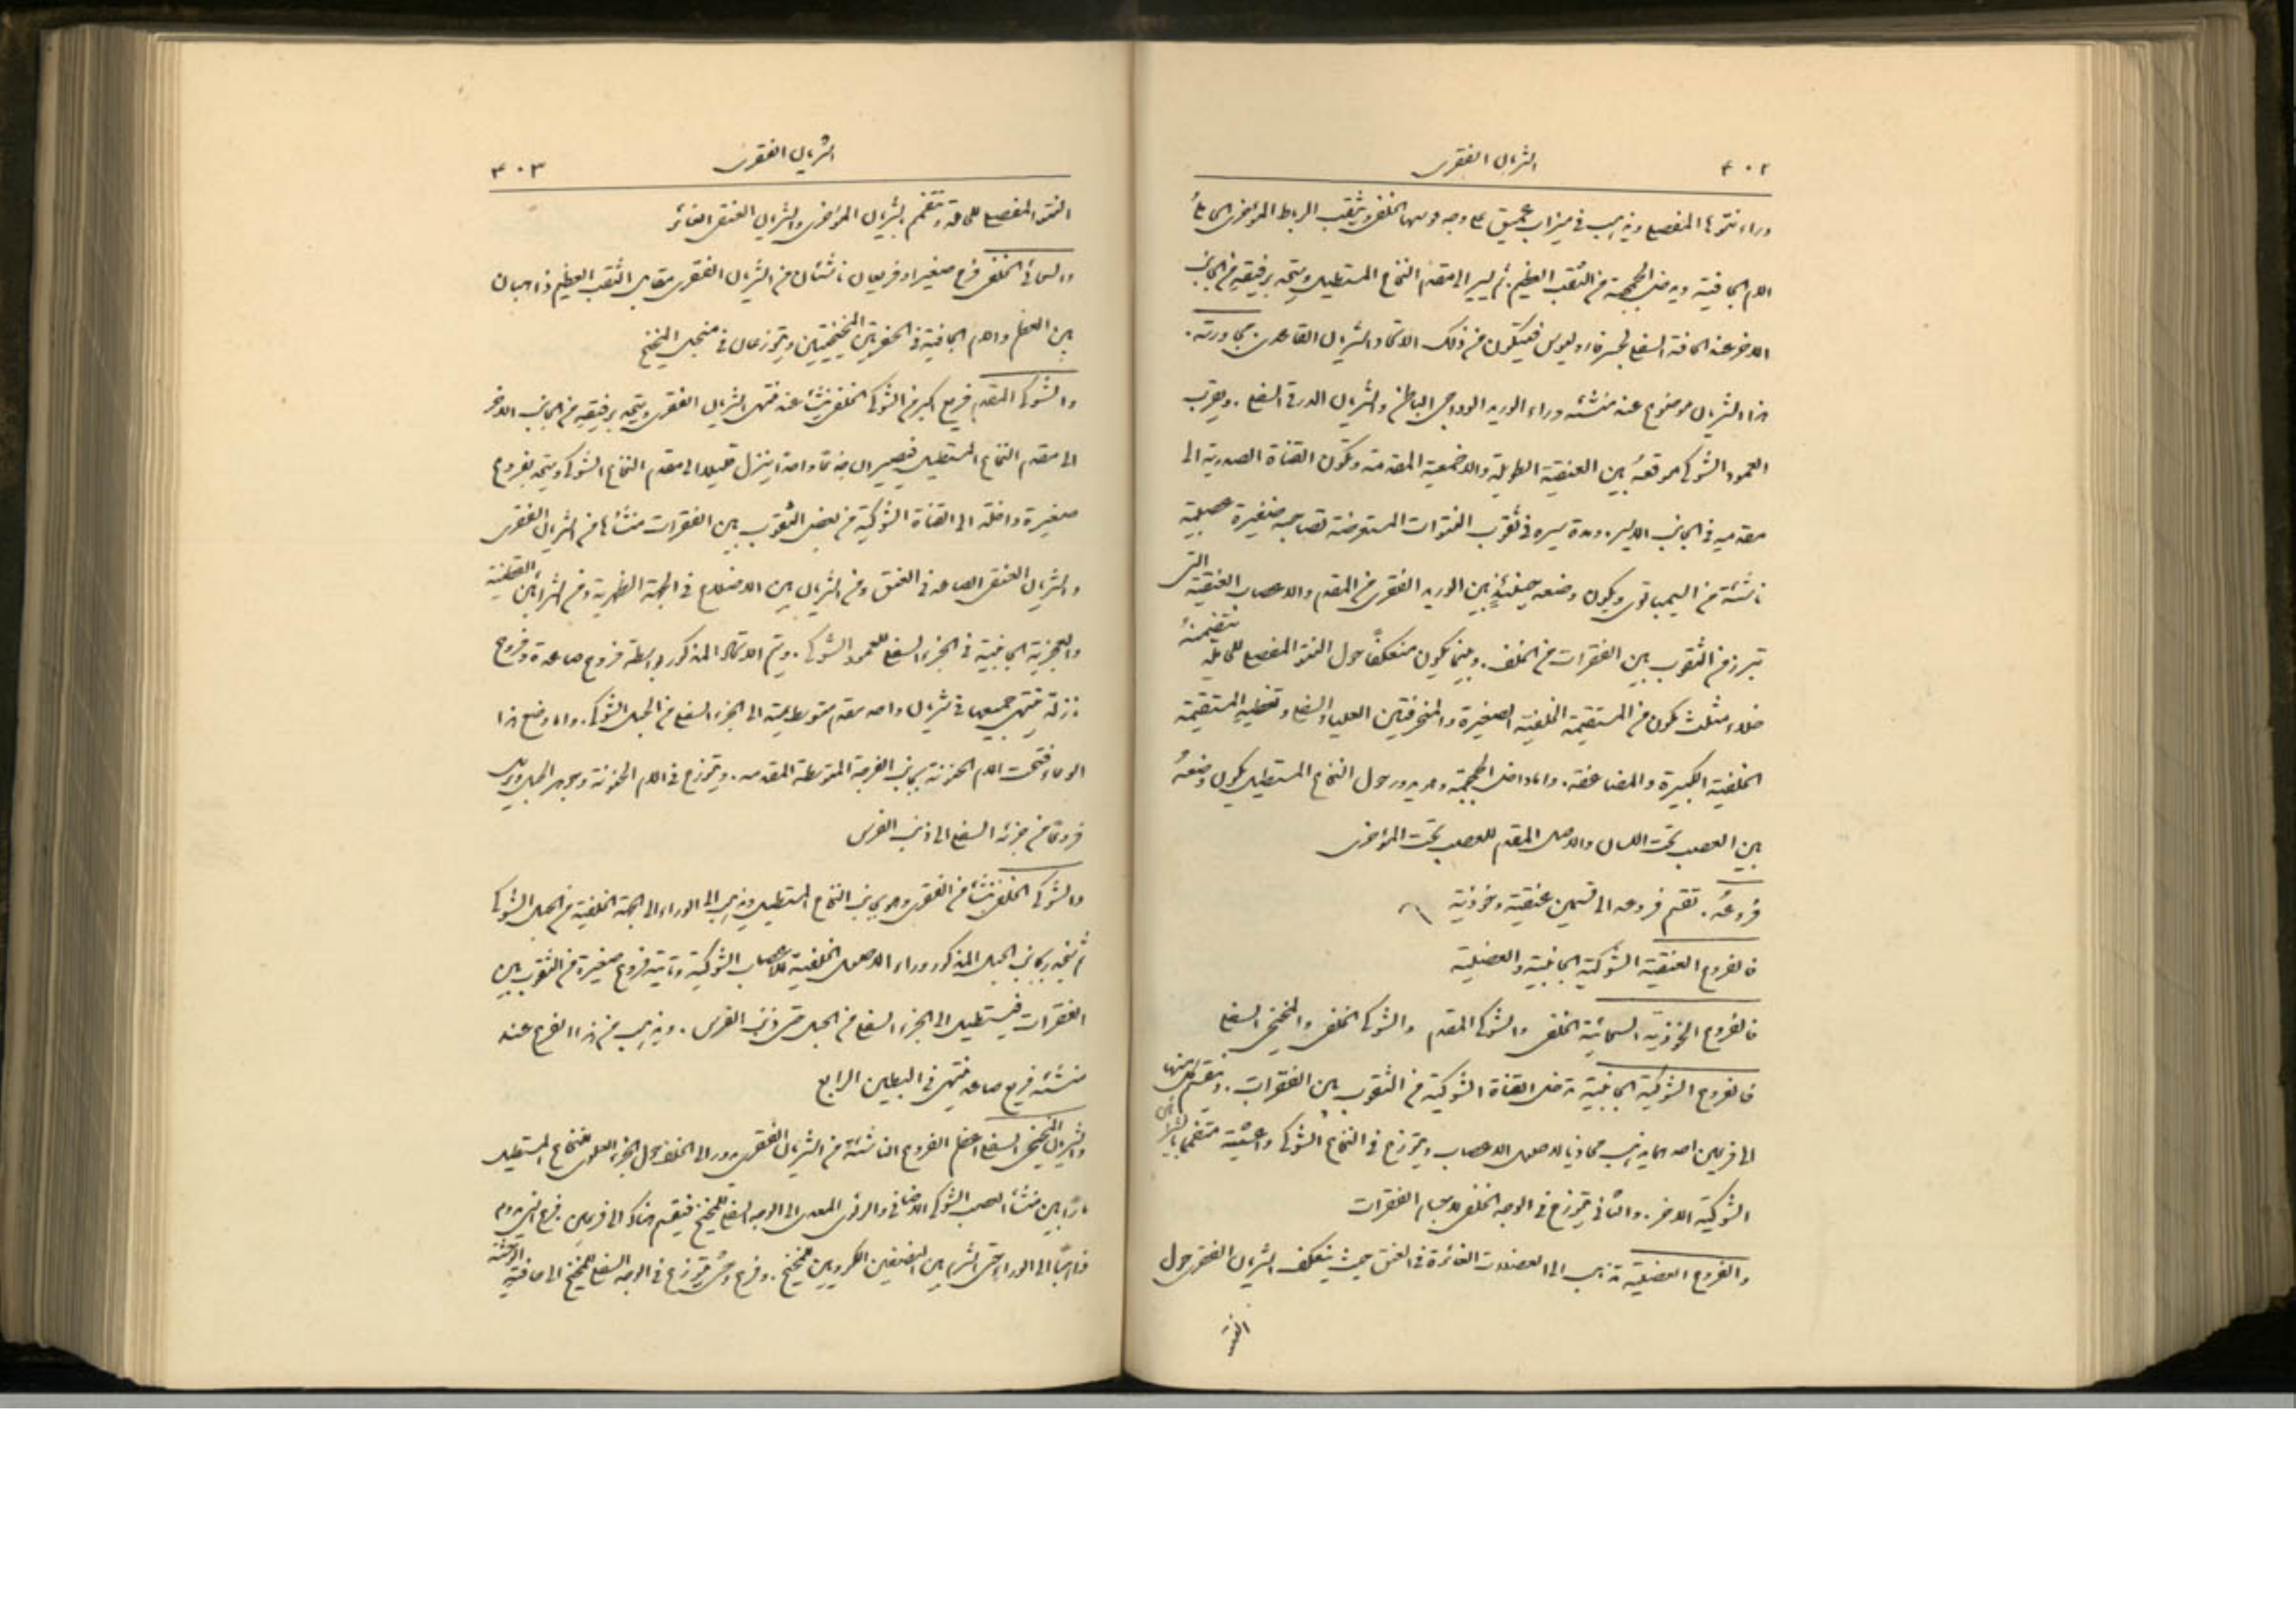 ٤٠٢
الشريان الفقرى
وراء نتوءها المفصلى ويذهب فى ميزاب عميق على وجه قوسها الخلفى ويثقب الرباط المؤخرى الحامل
الام الجافية ويدخل الجمجمة من الثقب العظيم. ثم يسير الى مقدم النخاع المستطيل ويتحد برفيقه من الجانب
الاخر عند الحافة السفلى لجسر فاروليوس فيتكون من ذلك الاتحاد الشريان القاعدى.
هذا الشريان موضوع عند منشئه وراء الوريد الوداجى الباطن والشريان الدرقى السفلى. ويقرب
العمود الشوكى موقعه بين العنقية الطويلة والاخمعية المقدمة وتكون القناة الصدرية الى
مقدمه فى الجانب الايسر. ومدة سيره فى ثقوب النتوات المستعرضة تصاحبه ضفيرة عصبية
ناشئة من السيمباتوى ويكون وضعه حينئذٍ بين الوريد الفقرى من المقدم والاعصاب العنقية التى
تبرز من الثقوب بين الفقرات من الخلف. وبينما يكون منعكفًا حول النتو المفصلى للحاملة يتضمنه
خلاء مثلث مكون من المستقيمة الخلفية الصغيرة والمنحرفتين العليا والسفلى وتغطيه المستقيمة
الخلفية الكبيرة والمضاعفة. واما داخل الجمجمة وهو يدور حول النخاع المستطيل يكون وضعه
بين العصب تحت اللسان والاصل المقدم للعصب تحت المؤخرى
فروعه. تقسم فروعه الى قسمين عنقية وخوذية
فالفروع العنقية الشوكية الجانبية والعضلية
فالفروع الخوذية السحائية الخلفى والشوكى المقدم والشوكى الخلفى والمخيخى السفلى
فالفروع الشوكية الجانبية تدخل القناة الشوكية من الثقوب بين الفقرات. وينقسم كل منها
الى فرعين احدهما يذهب محاذيا لاصول الاعصاب ويتوزع فى النخاع الشوكى واغشيته متفمما بالشرايين
الشوكية الاخر. والثانى يتوزع فى الوجه الخلفى لاجسام الفقرات
والفروع العضلية تذهب الى العضلات الغائرة فى العنق حيث ينعكف الشريان الفقرى حول
النتو
الشريان الفقرى
٤٠٣
النتو المفصلى للحاملة وتتفمم بالشريان المؤخرى والشريان العنقى الغائر
والسحائى الخلفى فرع صغير او فرعان ناشئان من الشريان الفقرى مقابل الثقب العظيم ذاهبان
بين العظم والام الجافية فى الحفرتين المخيخيتين ويتوزعان فى منجل المخيخ
والشوكى المقدم فرع اكبر من الشوكى الخلفى ينشأ عند منتهى الشريان الفقرى ويتحد برفيقه من الجانب الاخر
الى مقدم النخاع المستطيل فيصيران جذعًا واحدًا ينزل قليلا الى مقدم النخاع الشوكى ويتحد بفروع
صغيرة داخلة الى القناة الشوكية من بعض الثقوب بين الفقرات منشأها من الشريان الفقرى
والشريان العنقى الصاعد فى العنق ومن الشريان بين الاضلاع فى الجهة الظهرية ومن الشرايين القطنية
والعجزية الجانبية فى الجزء السفلى للعمود الشوكى. ويتم الاتحاد المذكور بواسطة فروع صاعدة وفروع
نازلة ينتهى جميعها فى شريان واحد مقدم متوسط يمتد الى الجزء السفلى من الحبل الشوكى. واما وضع هذا
الوعاء فتحت الام الحنونة بجانب الفرجة المتوسطة المقدمة. ويتوزع فى الام الحنونة وجوهر الحبل ويرسل
فروعًا من جزئه السفلى الى ذنب الفرس
والشوكى الخلفى ينشأ من الفقرى وهو بجانب النخاع المستطيل ويذهب الى الوراء الى الجهة الخلفية من الحبل الشوكى
ثم ينحدر بجانب الحبل المذكور وراء الاصول الخلفية للاعصاب الشوكية وتأتيه فروع صغيرة من الثقوب بين
الفقرات فيستطيل الى الجزء السفلى من الحبل حتى ذنب الفرس. ويذهب من هذا الفرع عند
منشئه فرع صاعد ينتهى فى البطين الرابع
والشريان المخيخى السفلى اعظم الفروع الناشئة من الشريان الفقرى يدور الى الخلف حول الجزء العلوى للنخاع المستطيل
مارًا بين منشأ العصب الشوكى الاضافى والرئوى المعدى الى الوجه السفلى للمخيخ فينقسم هناك الى فرعين. فرع انسى يدوم
ذاهبًا الى الوراء حتى الشرم بين النصفين الكرويين للمخيخ. وفرع وحشى يتوزع فى الوجه السفلى للمخيخ الى حافته الوحشية